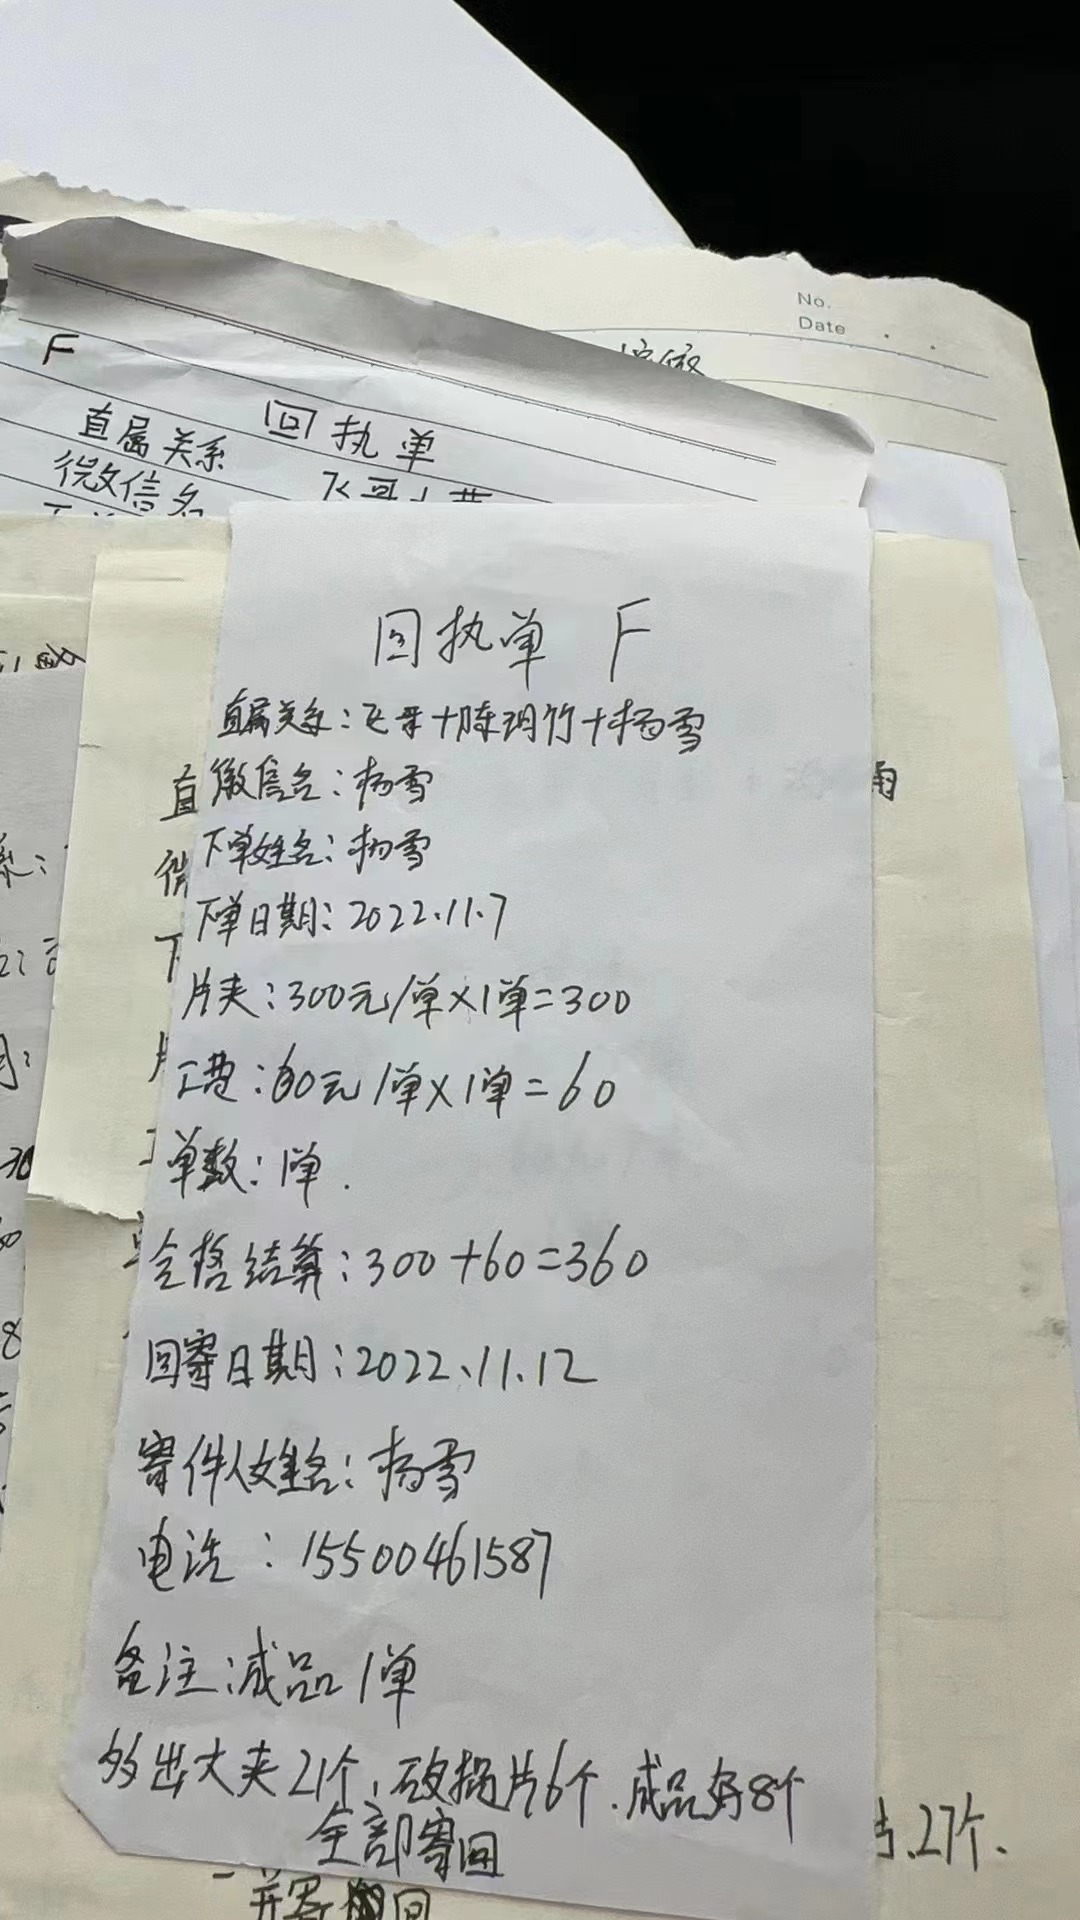 No.
Date
F
回执单
直属关系
微信名
回执单 F
直属关系：飞哥+陈玥竹+杨雪
微信名：杨雪
下单姓名：杨雪
下单日期：2022.11.7
片夹：300元/单×1单=300
工费：60元/单×1单=60
单数：1单.
合格结算：300+60=360
回寄日期：2022.11.12
寄件人姓名：杨雪
电话：15500461587
备注：成品1单
多出大夹21个，破损片6个.成品好8个
全部寄回
27个.